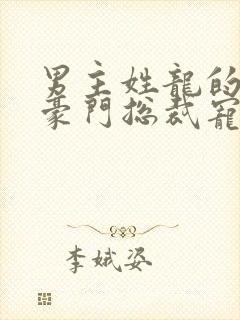 男主姓龍的
豪門总裁寵
李娥姿